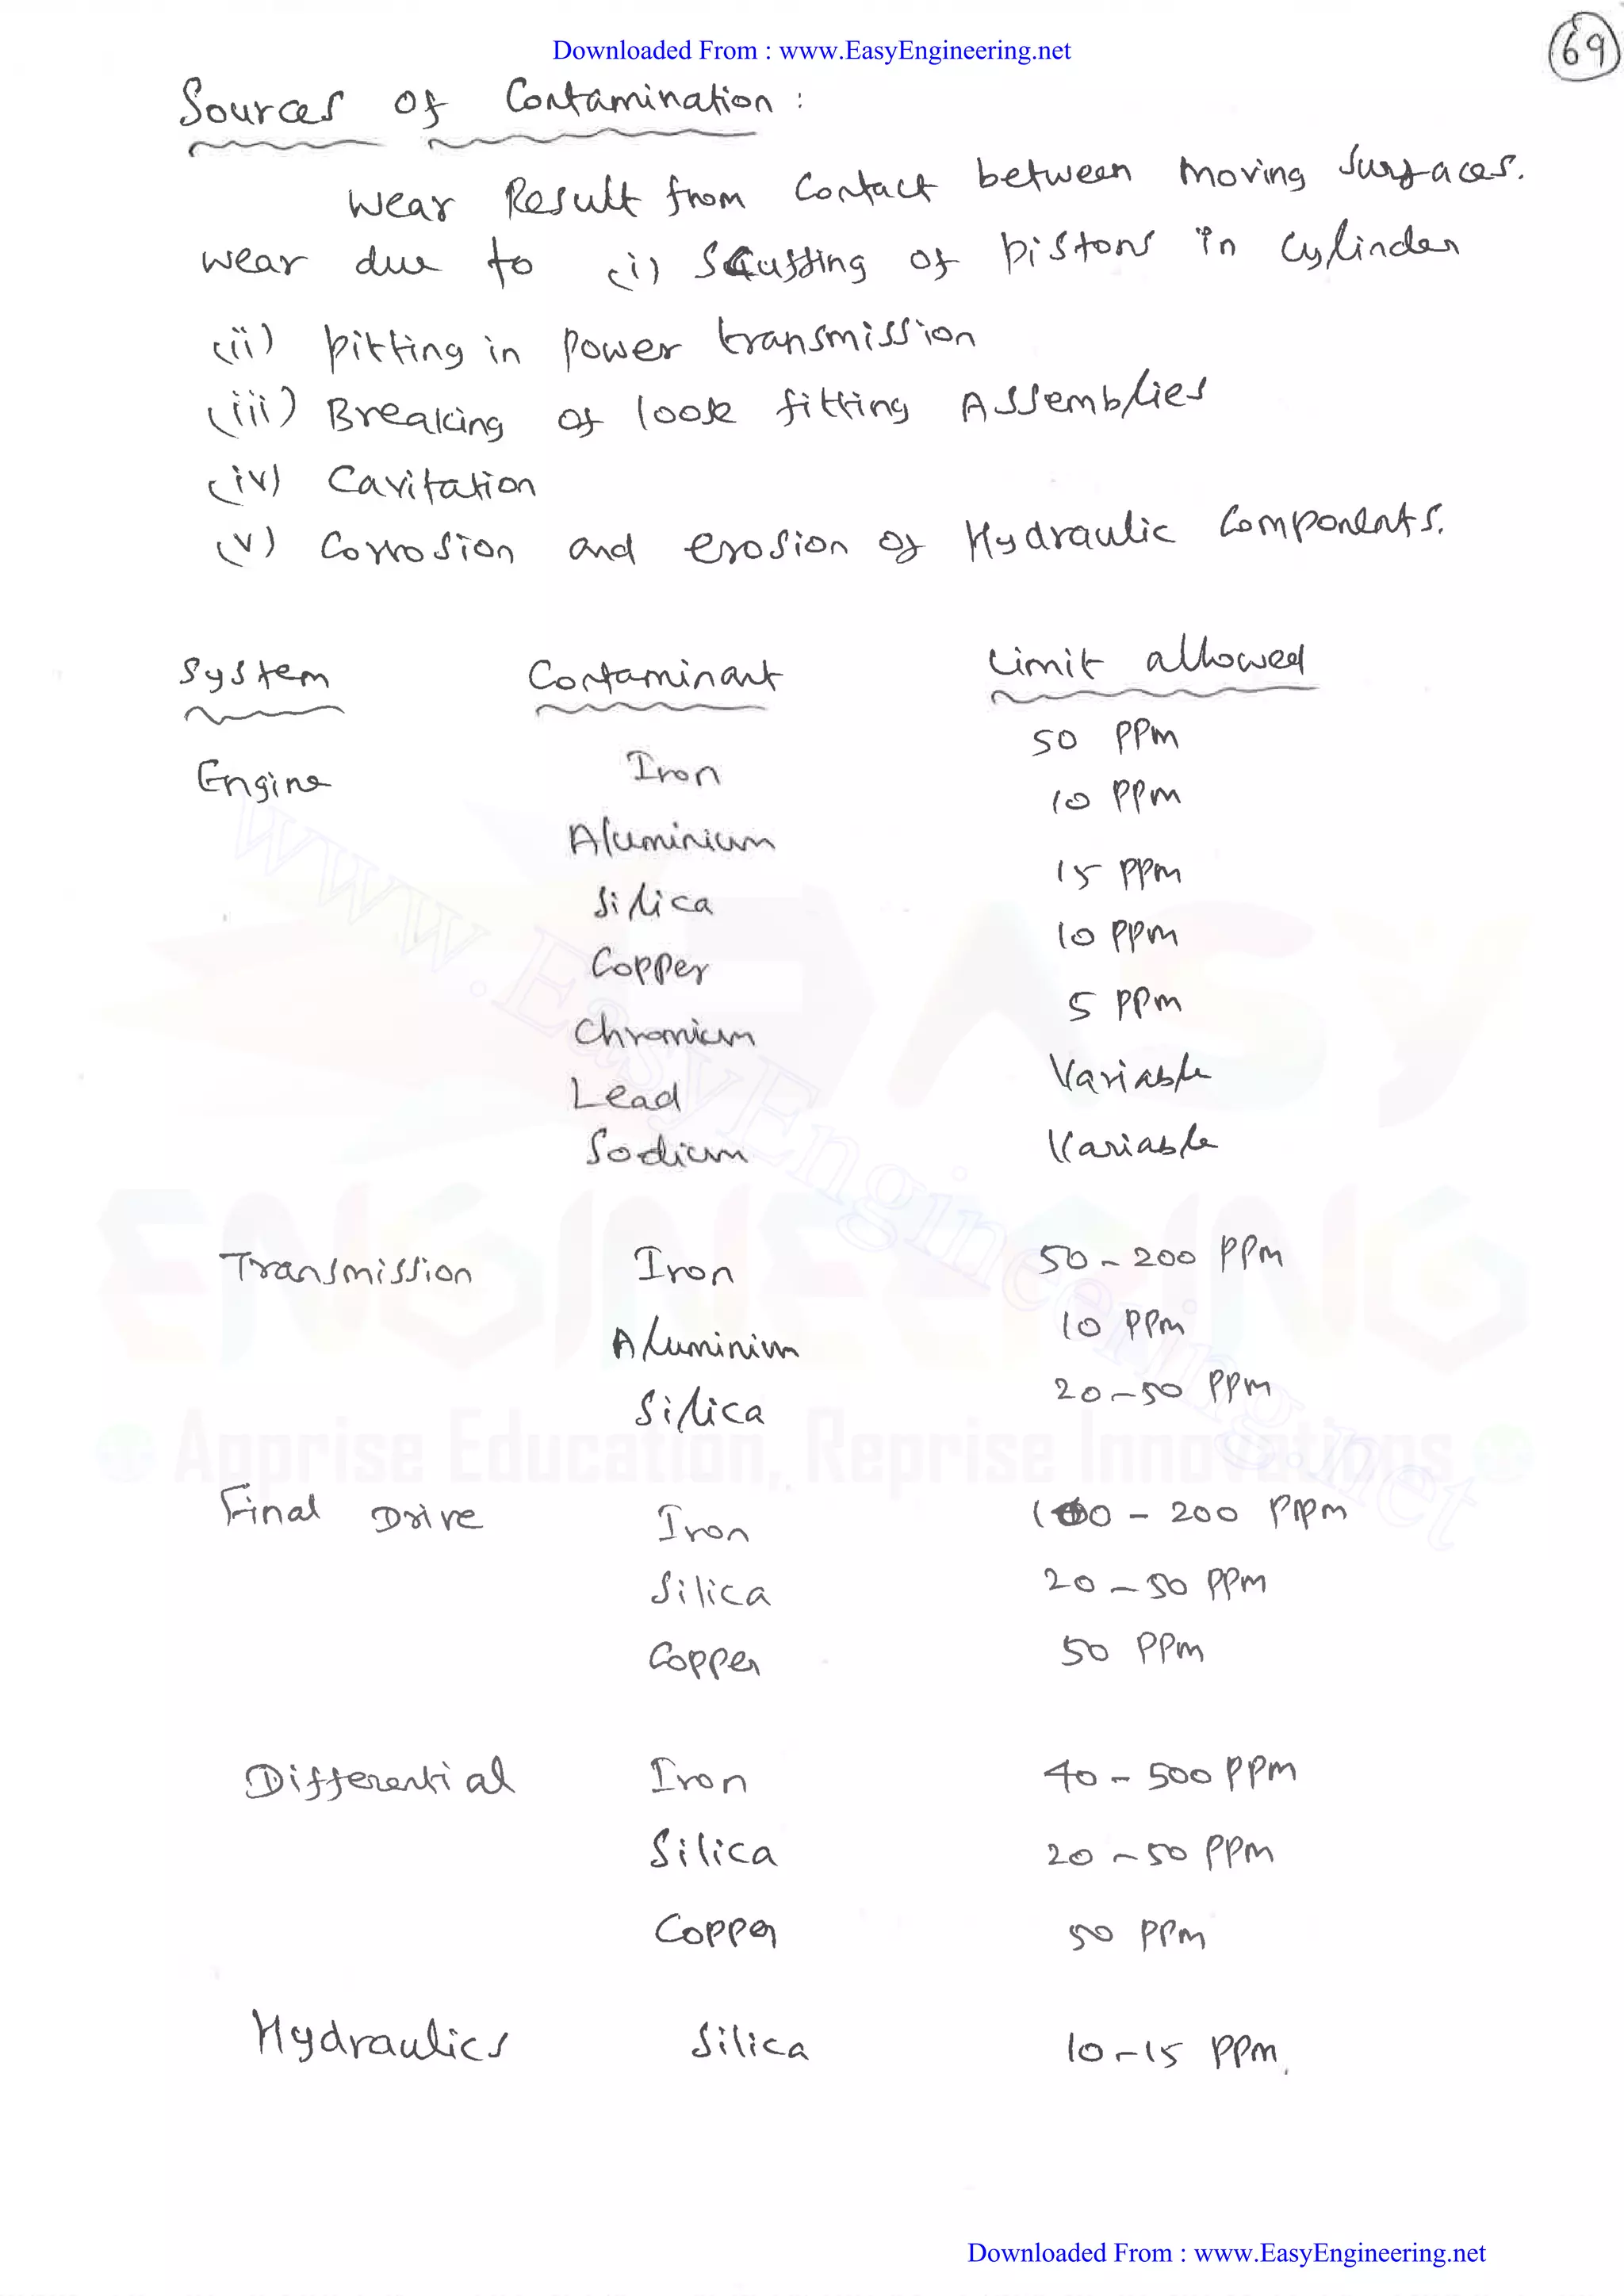 Downloaded From : www.EasyEngineering.net
69
Sources of Contamination :
Wear Result from Contact between moving surfaces.
wear due to (i) Scuffing of pistons in cylinder
(ii) pitting in power transmission
(iii) Breaking of loose fitting Assemblies
(iv) Cavitation
(v) Corrosion and erosion of Hydraulic Components.
System Contaminant Limit allowed
Engine Iron 50 PPm
Aluminium 10 PPm
Silica 15 PPm
Copper 10 PPm
Chromium 5 PPm
Lead Variable
Sodium Variable
Transmission Iron 50 - 200 PPm
Aluminium 10 PPm
Silica 20 - 50 PPm
Final Drive Iron 100 - 200 PPm
Silica 20 - 50 PPm
Copper 50 PPm
Differential Iron 40 - 500 PPm
Silica 20 - 50 PPm
Copper 50 PPm
Hydraulics Silica 10 - 15 PPm.
www.EasyEngineering.net
EASY
ENGINEERING
Apprise Education, Reprise Innovations
Downloaded From : www.EasyEngineering.net